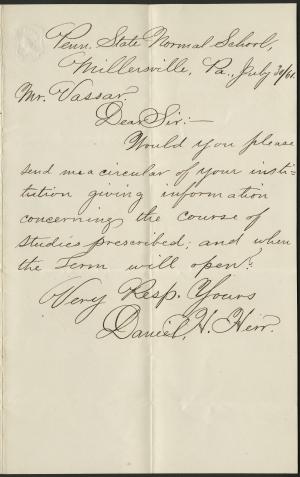 Penn. State Normal School,
Millersville, Pa., July 30/61
Mr. Vassar.
Dear Sir:—
Would you please
send me a circular of your insti=
tution giving information
concerning the course of
Studies prescribed; and when
the Term will open?
Very Resp. Yours
Daniel, H. Herr.